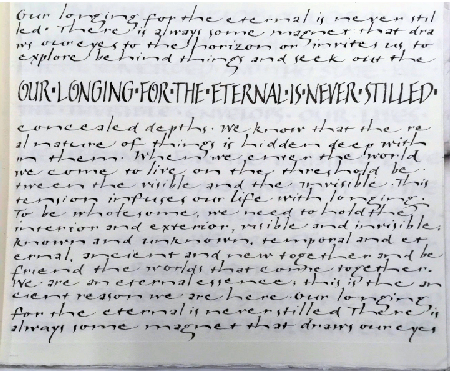 Our longing for the eternal is never stil
led. There is always some magnet that dra
ws our eyes to the horizon or invites us to
explore behind things and seek out the
OUR·LONGING·FOR·THE·ETERNAL·IS·NEVER·STILLED·
concealed depths. We know that the re
al nature of things is hidden deep with
in them. When we enter the world
we come to live on the threshold be
tween the visible and the invisible. This
tension infuses our life with longing.
To be wholesome, we need to hold the
interior and exterior, visible and invisible,
known and unknown, temporal and et
ernal, ancient and new together and be
friend the worlds that come together.
We are an eternal essence: this is the an
cient reason we are here. Our longing
for the eternal is never stilled. There is
always some magnet that draws our eyes